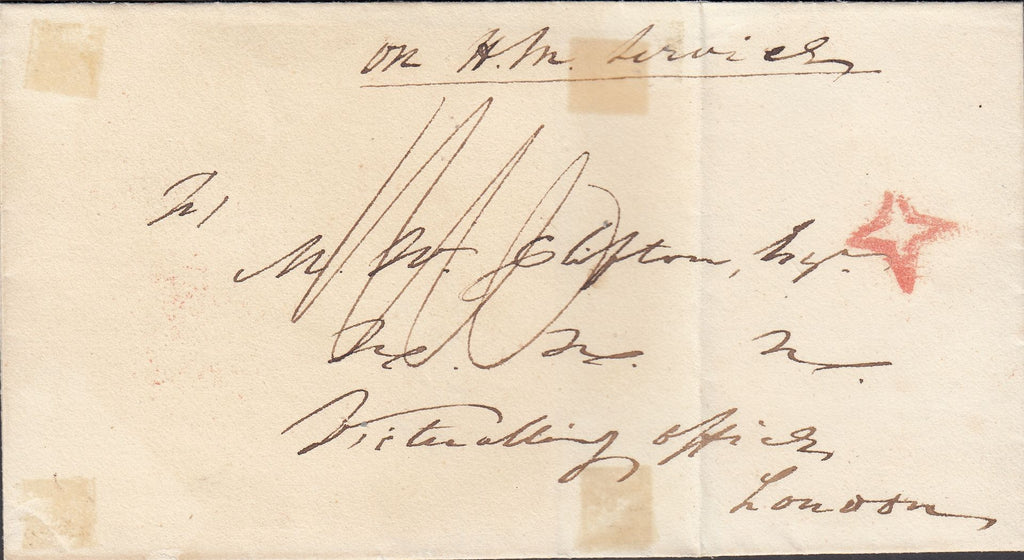 On H.M. Service
To/
M. W. Clifton, Esqr.
&c. &c. &c.
Victualling Office,
London,